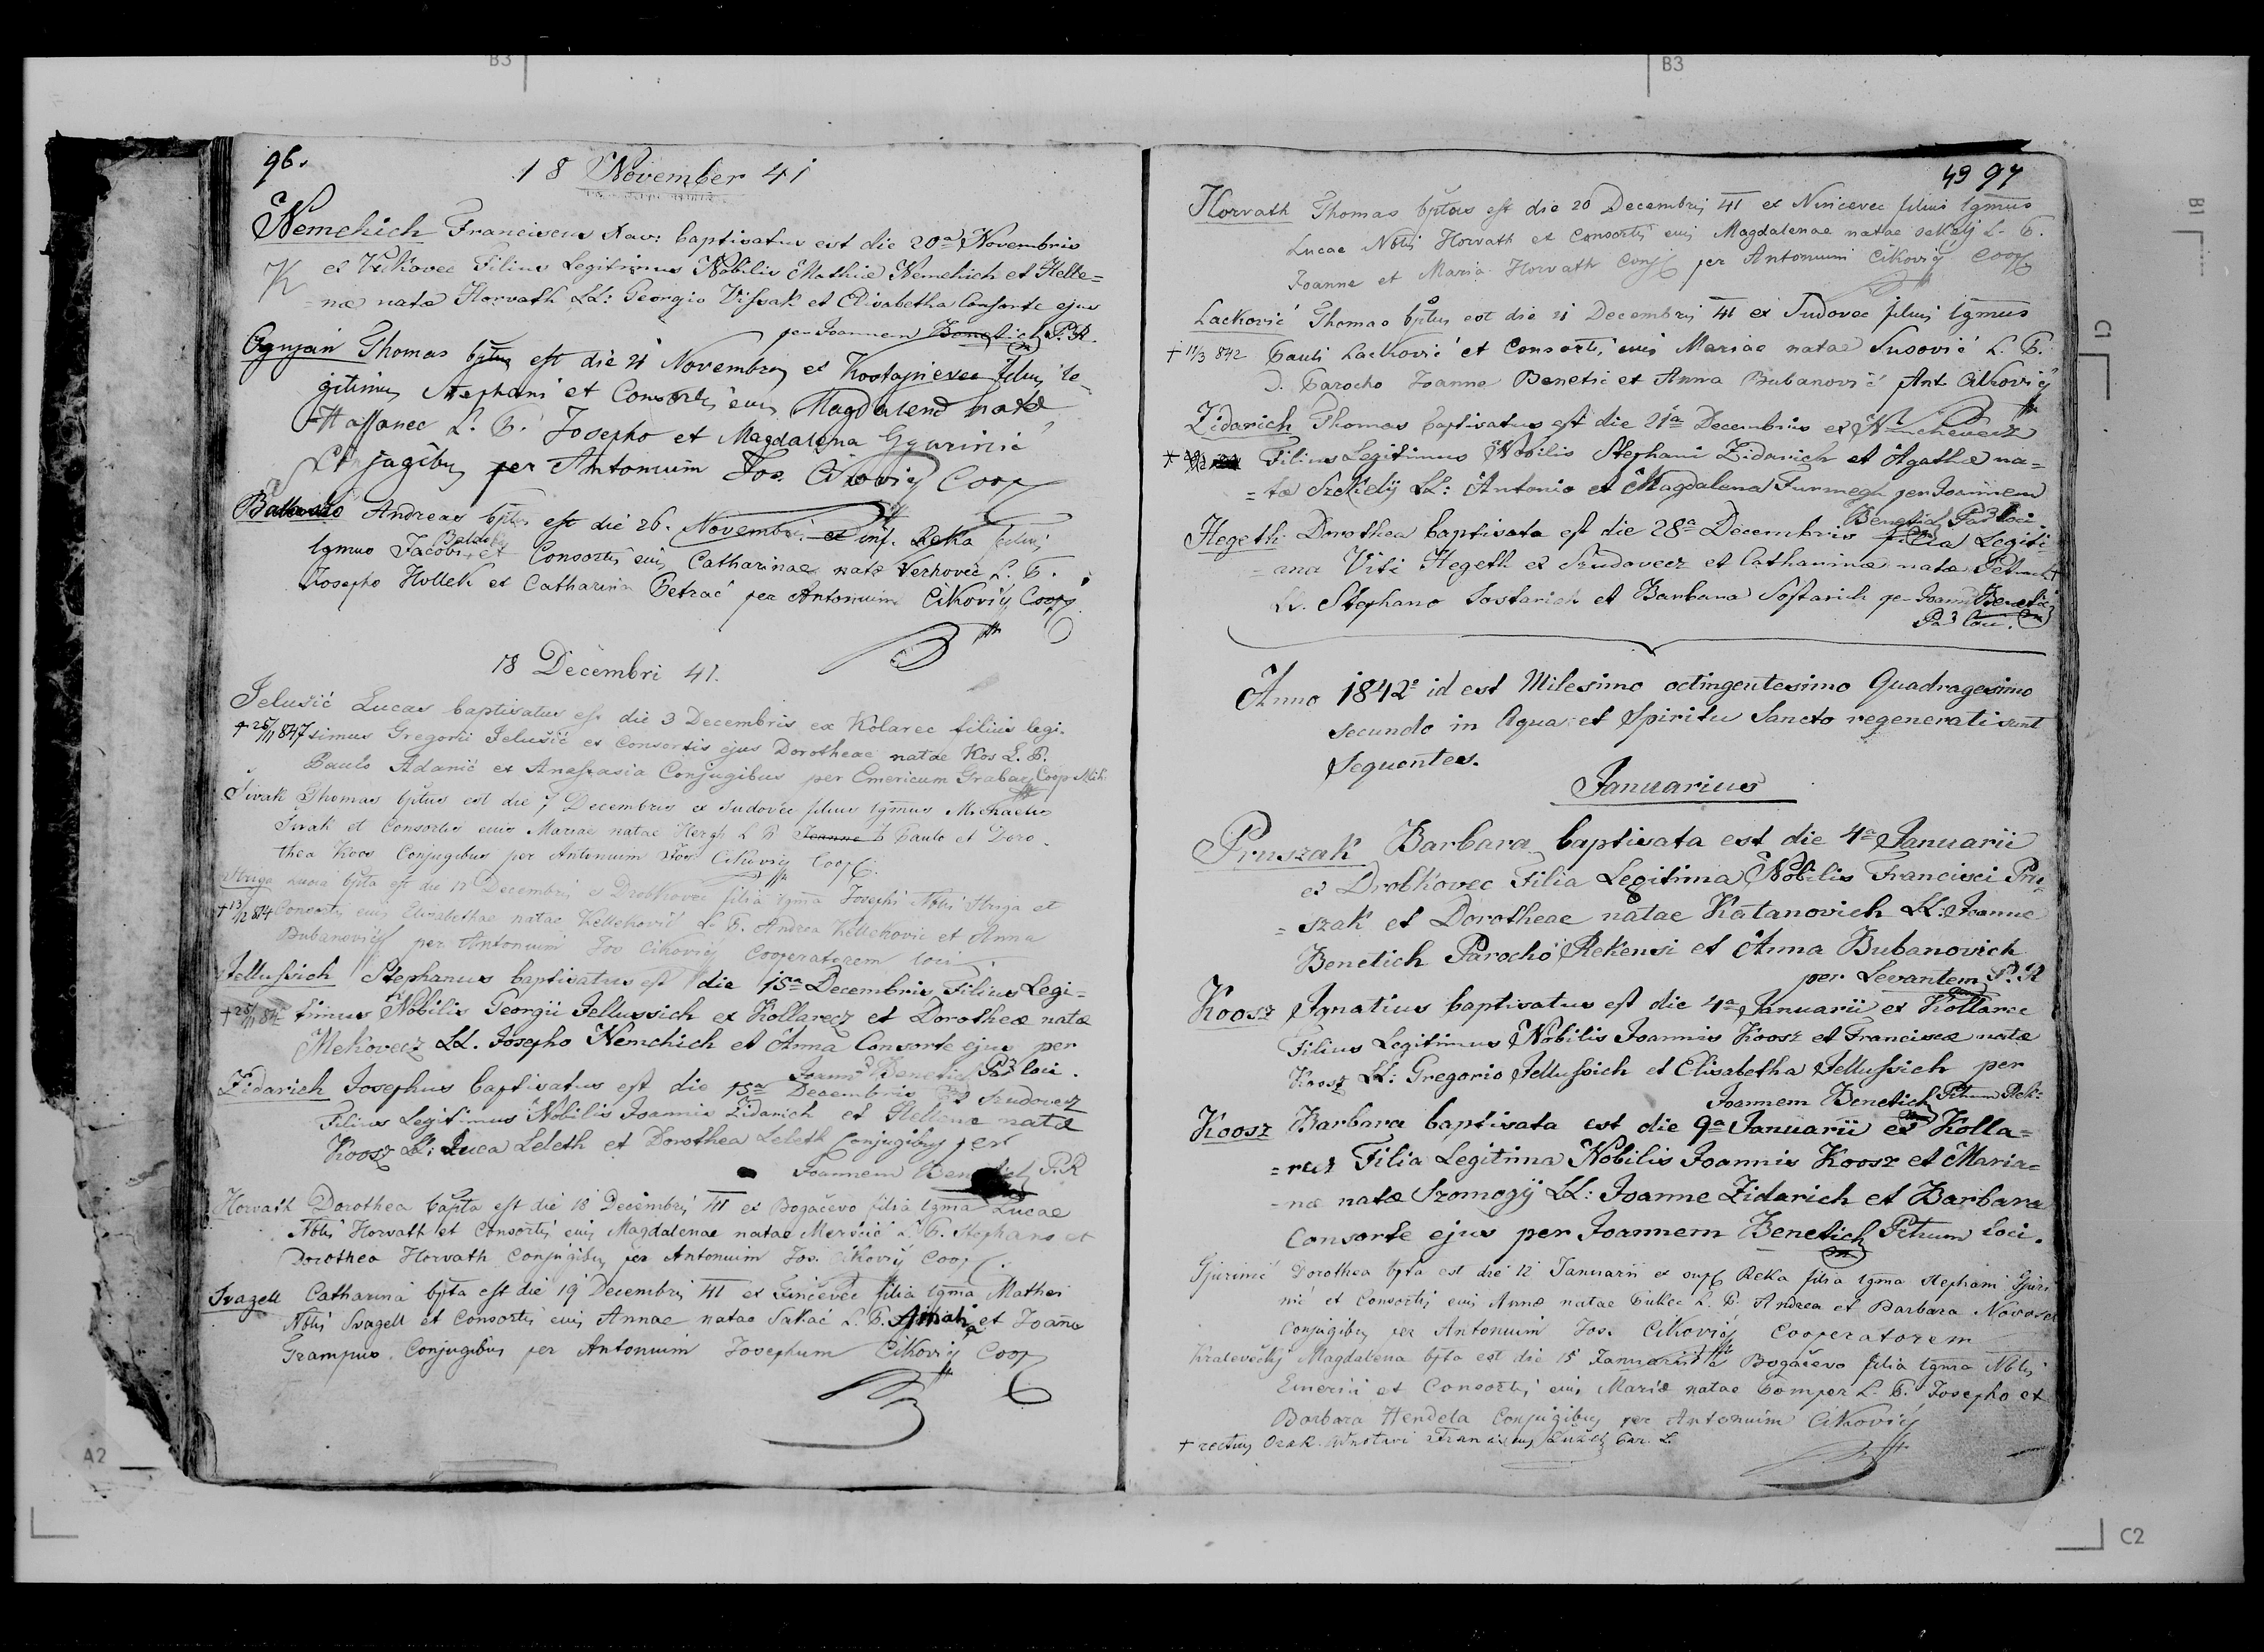 B3
B3
B1
C1
A2
C2
96.
18 November 41
Nemchich Franciscus Xav: baptisatus est die 20a Novembris
ex Filius Legitimus Nobilis Mathiæ Nemchich et Helle=
=næ natæ Horvath LL: Georgio Vissak et Elisabetha Consorte ejus
per Joannem Benetich P.R.
Ognjan Thomas bptus est die 21 Novembris ex Kostajnevec filius le-
gitimus Stephani et Consortis eius Magdalenæ natæ
L. P. Josepho et Magdalena Gyurinić
Conjugibus per Antonium Jos. Ciković Coop
Andreas bptus est die 26. Novembris ex inf. Reka filius
lgmus Jacobi et Consortis eius Catharinae natæ Verhoveć L. P.
Josepho Hollek et Catharina Petrać per Antonium Ciković Coop.
18 Decembri 41.
Jelušić Lucas baptisatus est die 3 Decembris ex Kolarec filius legi-
† 25/11 847 timus Gregorii Jelušić et Consortis ejus Dorotheae natae Kos L. P.
Paulo Adanić et Anastasia Conjugibus per Emericum Grabar Coop Mih:
Sivak Thomas bptus est die 7 Decembris ex Sudovec filius lgmus Michaelis
Sivak et Consortis eius Mariae natae Hergh L P Joanne Paulo et Doro-
thea Koos Conjugibus per Antonium Jos Ciković Coop.
Struga Lucia bpta est die 12 Decembris ex Drobkovec filia lgma Josephi Nblis Struga et
Consortis eius Elisabethae natae Kelleković L. P. Andrea Kellekovic et Anna
Bubanović per Antonium Jos Ciković Cooperatorem loci
Jellussich Stephanus baptisatus est die 15a Decembris Filius Legi=
timus Nobilis Georgii Jellussich ex Kollarecz et Dorotheæ natæ
Mekovecz LL. Josepho Nemchich et Anna Consorte ejus per
Joannem Benetich loci.
Zidarich Josephus baptisatus est die 15a Decembris ex Szudovecz
Filius Legitimus Nobilis Joannis Zidarich et Hellenæ natæ
Koosz LL: Luca Leleth et Dorothea Leleth Conjugibus per
Joannem Benetich P.R
Horvath Dorothea bapta est die 18 Decembris 41 ex Bogačevo filia lgma Lucae
Nblis Horvath et Consortis eius Magdalenae natae Merščić L. P. Stephano et
Dorothea Horvath Conjugibus per Antonium Jos. Ciković Coop.
Svagell Catharina bpta est die 19 Decembris 41 ex filia lgma Mathei
Nblis Svagell et Consortis eius Annae natae Sakać L. P. et Joanne
Grampus Conjugibus per Antonium Josephum Ciković Coop
49 97
Horvath Thomas bptus est die 20 Decembris 41 ex filius lgmus
Lucae Nblis Horvath et Consortis eius Magdalenae natae Sekely L. P.
Joanne et Maria Horvath Conj per Antonium Ciković Coop
Lacković Thomas bptus est die 21 Decembris 41 ex Sudovec filius lgmus
† 11/3 842 Pauli Lacković et Consortis eius Mariae natae Susović L. P.
D. Parocho Joanne Benetic et Anna Bubanović Ant. Ciković
Zidarich Thomas baptisatus est die 21a Decembris ex
Filius Legitimus Nobilis Stephani Zidarich et Agathæ na=
=tæ Szekely LL: Antonio et Magdalena Furmegh per Joannem
Benetich loci
Hegeth Dorothea baptisata est die 28a Decembris filia Legiti
=ana Viti Hegeth ex Szudovecz et Catharinæ natæ
LL. Stephano Sostarich et Barbara Sostarich per Joannem Benetich
loci.
Anno 1842o id est Milesimo octingentesimo Quadragesimo
secundo in Aqua et Spiritu Sancto regenerati sunt
sequentes.
Januarius
Pruszak Barbara baptisata est die 4a Januarii
ex Drobkovec Filia Legitima Nobilis Francisci Pru
=szak et Dorotheae natae Katanovich LL: Joanne
Benetich Parocho Rekensi et Anna Bubanovich
per Levantem P. R
Koosz Ignatius baptisatus est die 4a Januarii ex Kollarec
Filius Legitimus Nobilis Joannis Koosz et Franciscæ natæ
Koosz LL: Gregorio Jellussich et Elisabetha Jellussich per
Joannem Benetich Pchum Rek:
Koosz Barbara baptisata est die 9a Januarii ex Kolla=
=recz Filia Legitima Nobilis Joannis Koosz et Maria=
=næ natæ Szomogÿ LL: Joanne Zidarich et Barbara
Consorte ejus per Joannem Benetich Pchum loci.
Gjurinić Dorothea bpta est die 12 Januarii ex sup. Reka filia lgma Stephani Gjuri
nić et Consortis eius Annæ natae Cukec L. P. Andrea et Barbara Novosel
Conjugibus per Antonium Jos. Ciković Cooperatorem
Kralevečkij Magdalena bpta est die 15 Januarii ex Bogačevo filia lgma Nblis
Emerici et Consortis eius Mariæ natae Pomper L. P. Josepho et
Barbara Hendela Conjugibus per Antonium Ciković
† rectius Franciscus Par. L.